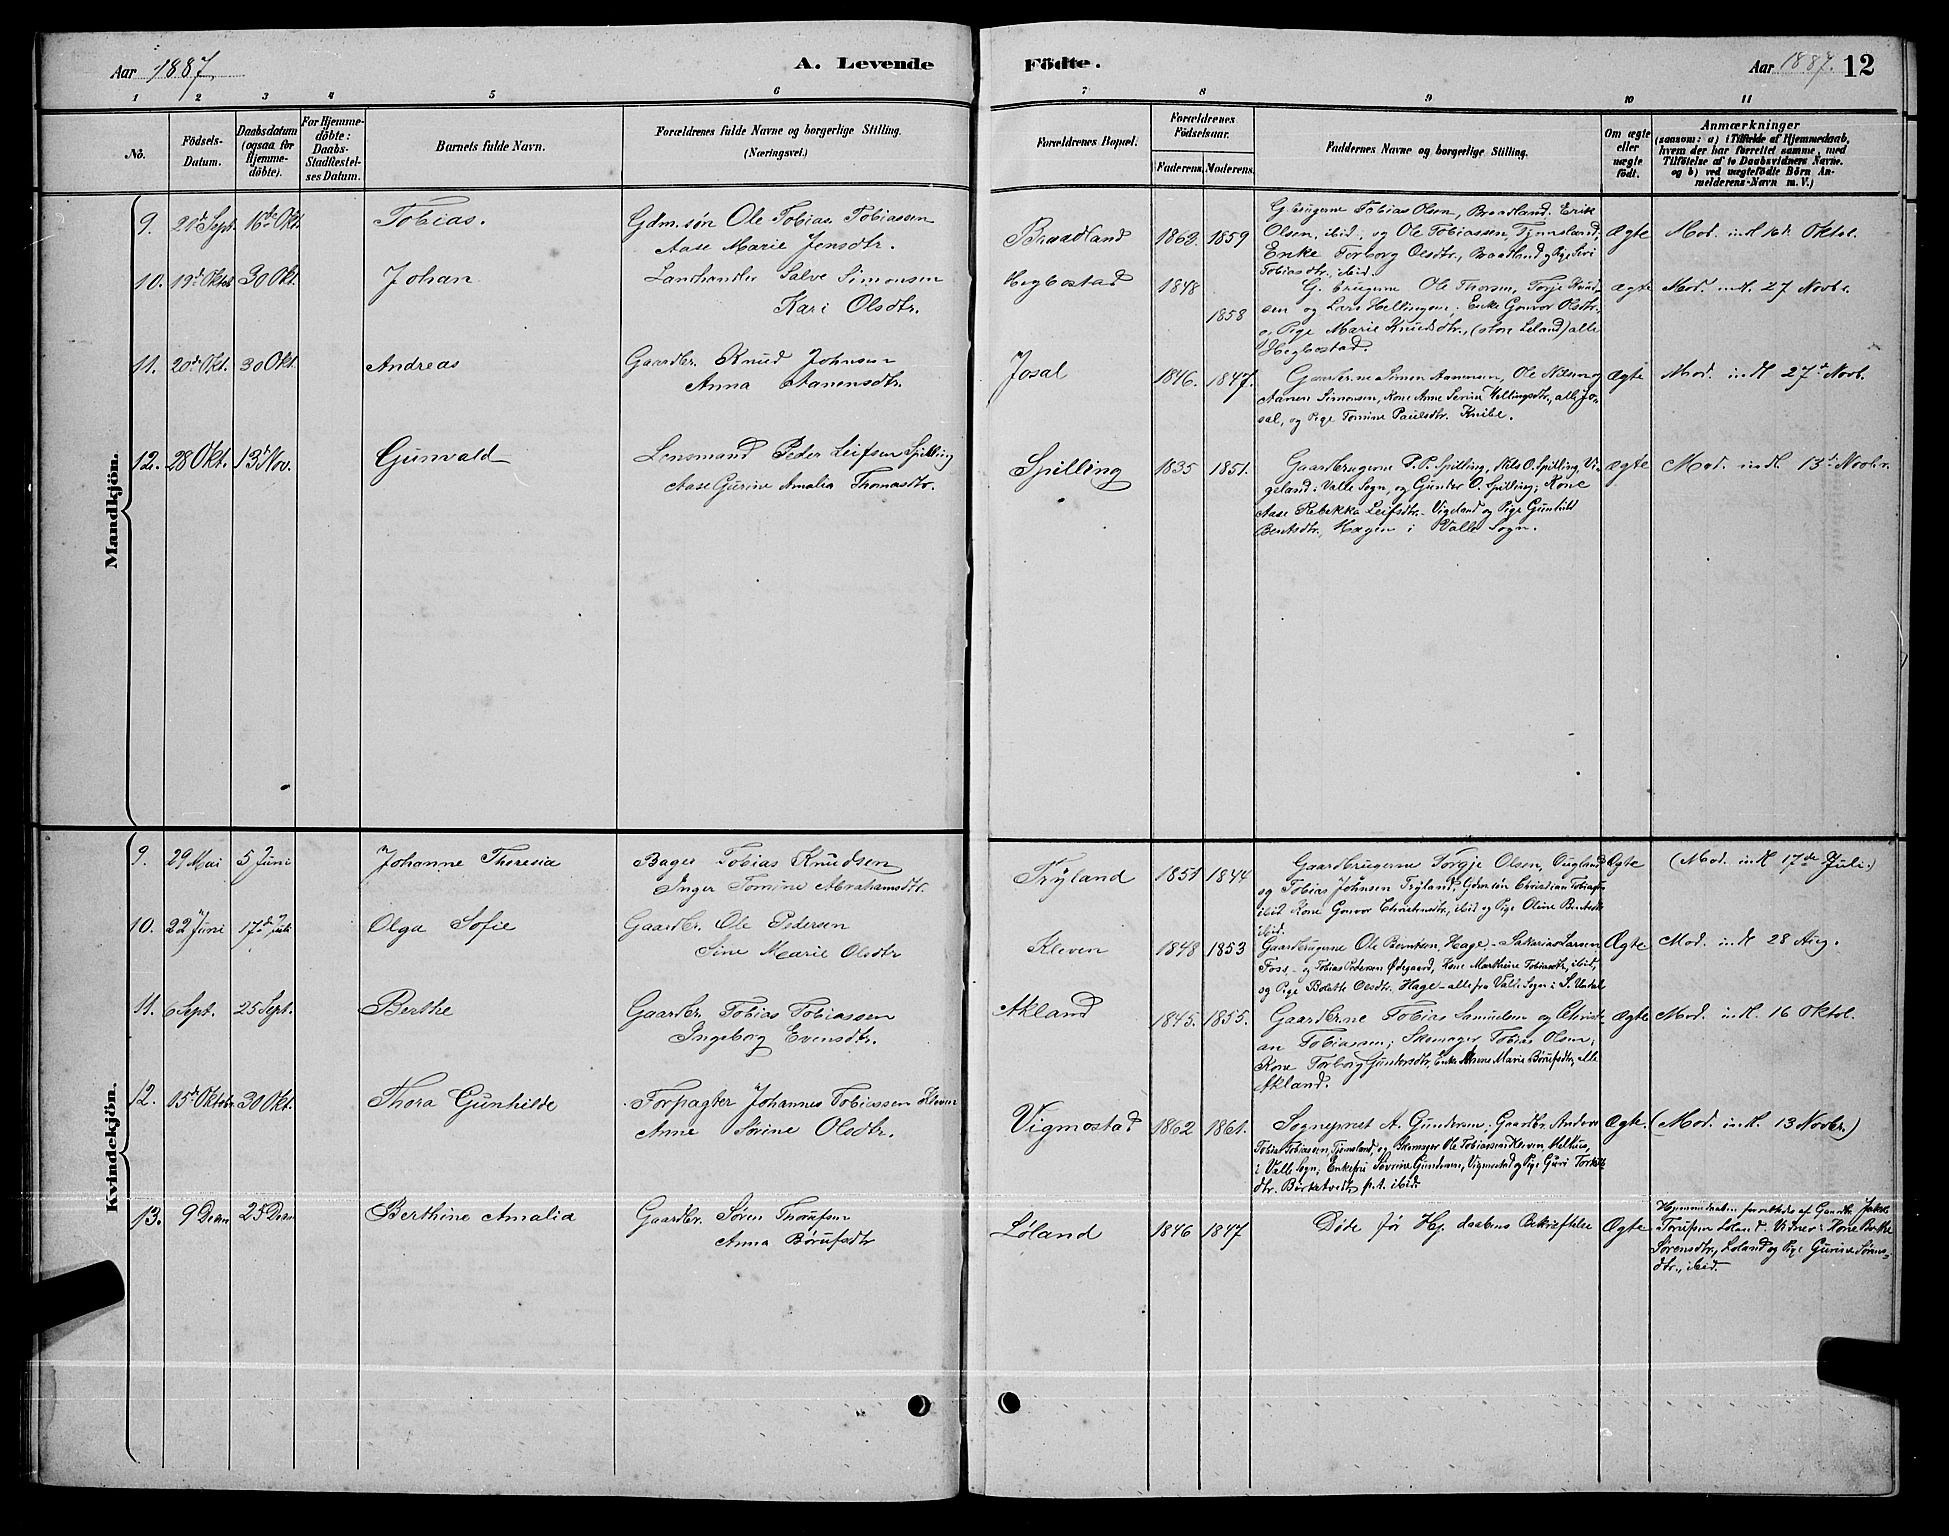 Aar 1887. A. Levende Födte. Aar 1887. 12
1 2 3 4 5 6 7 8 9 10 11
No. Födsels-Datum. Daabsdatum (ogsaa for Hjemme-döbte). For Hjemme-döbte: Daabs-Stadfestel-ses Datum. Barnets fulde Navn. Forældrenes fulde Navne og borgerlige Stilling. (Næringsvei.) Forældrenes Bopæl. Forældrenes Födselsaar. Faderens. Moderens. Faddernes Navne og borgerlige Stilling. Om ægte eller uægte födt. Anmærkninger (saasom: a) i Tilfælde af Hjemmedaab, hvem der har forrettet samme, med Tilföielse af to Daabsvidners Navne. og b) ved uægtefödte Börn Anmelderens-Navn m. V.)
Mandkjön.
9. 20de Sept. 16de Okt. Tobias. Gdm.søn Ole Tobias Tobiassen
Aase Marie Jensdtr.
Braadland 1863. 1859
G.brugerne Tobias Olsen, Braadland. Erik
Olsen, ibid., og Ole Tobiassen, Tjomsland,
Enke Torborg Olsdtr., Braadland og Pige Siri
Tobiasdtr., ibid.
Ægte Mod. ind. 16d. Oktol.
10. 19de Oktob 30 Okt. Johan Landhandler Salve Simonsen
Kari Olsdtr.
Hegbostad 1848 1858
G.brugerne Ole Thorsen, Torje Knud-
sen og Lars Hellingsen; Enke Gonvor Olsdtr.
og Pige Marie Knudsdtr., alle
Hegbostad.
Ægte Mod. ind. 27 Novbr.
11. 20de Okt. 30 Okt. Andreas Gaardbr. Knud Johnsen
Anna Aanensdtr.
Josal 1846. 1847.
Gaardbr.ne Simon Aanensen, Ole Nilsen og
Aanen Simonsen, Kone Anne Serine Hellingsdtr., alle Jo-
sal, og Pige Tomine Paulsdtr. Knibe.
Ægte Mod. ind. 27d Novb.
12. 28 Okt. 13d Nov. Gunvald Lensmand Peder Leifsen Spilling
Aase Gurine Amalia Thomasdtr.
Spilling 1835 1851.
Gaardbrugerne P. P. Spilling, Nils O. Spilling, Vi-
geland i Valle Sogn, og Gunder O. Spilling; Kone
Aase Rebekka Leifsdtr. Vigeland og Pige Gunhild
Bentsdtr., Hagen i Valle Sogn.
Ægte Mod. ind. 13d Novbr.
Kvindekjön.
9. 29 Mai 5 Juni Johanne Theresia Bager Tobias Knudsen
Inger Tomine Abrahamsdtr.
Tryland 1851 1844
Gaardbrugerne Torgje Olsen, Ougland
og Tobias Johnsen Tryland, Gdm.søn Christian Tobiassen
ibid Kone Gonvor Christensdtr., ibid og Pige Oline Bentsdtr
ibid.
Ægte (Mod. ind 17de Juli.)
10. 22 Juni 17de Juli Olga Sofie Gaardbr. Ole Pedersen
Sine Marie Olsdtr
Kleven 1848 1853
Gaardbrugerne Ole Berntsen, Hage - Sakarias Larsen
Foss - og Tobias Pedersen Ødegaard, Kone Marthine Tobiasdtr, ibid,
og Pige Bolette Olsdtr. Hage - alle fra Valle Sogn i S. Undal
Ægte Mod. ind 28 Aug.
11. 6 Sept. 25 Sept. Berthe Gaardbr. Tobias Tobiassen
Ingeborg Evensdtr.
Akland 1845. 1855.
Gaardbr.ne Tobias Samuelsen og Christi-
an Tobiassen; Skomager Tobias Olsen;
Kone Torborg Gundersdtr, Enke Anne Marie Børufsdtr, alle
Akland.
Ægte Mod. ind. 16 Oktol.
12. 15de Oktobr 30 Okt. Thora Gunhilde Forpagter Johannes Tobiassen Kleven
Anne Sørine Olsdtr.
Vigmostad 1862 1861.
Sogneprest A. Gundersen; Gaardbr. Anders
Tobias Tobiassen, Tjomsland, og Skomager Ole Tobiassen Kleven, Melhus,
i Valle Sogn; Enkefru Severine Gundersen, Vigmostad og Pige Guri Torkils-
dtr. Birketvedt p.t. ibid.
Ægte. (Mod. ind. 13 Novbr.)
13. 9 Decm 25 Decm Berthine Amalia Gaardbr. Søren Thorufsen
Anna Børufsdtr
Løland 1846 1847
Døde før Hj. daabens Bekræftelse
Ægte Hjemmedaaben forrettedes af Gaardbr. Jakob
Torufsen Løland. Vidner: Kone Berthe
Sørensdtr., Løland og Pige Gurine Sørens-
dtr., ibid.